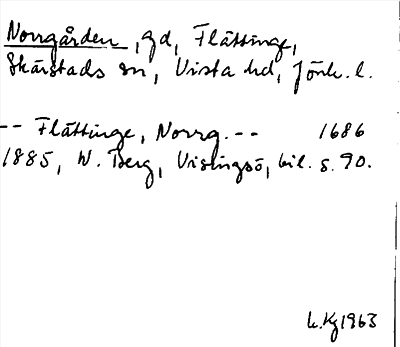 Norrgården, gd, Flättinge,
Skärstads sn, Vista hd, Jönk. l.
-- Flättinge, Norrg. -- 1686
1885, W. Berg, Visingsö, bil. s. 90.
1963